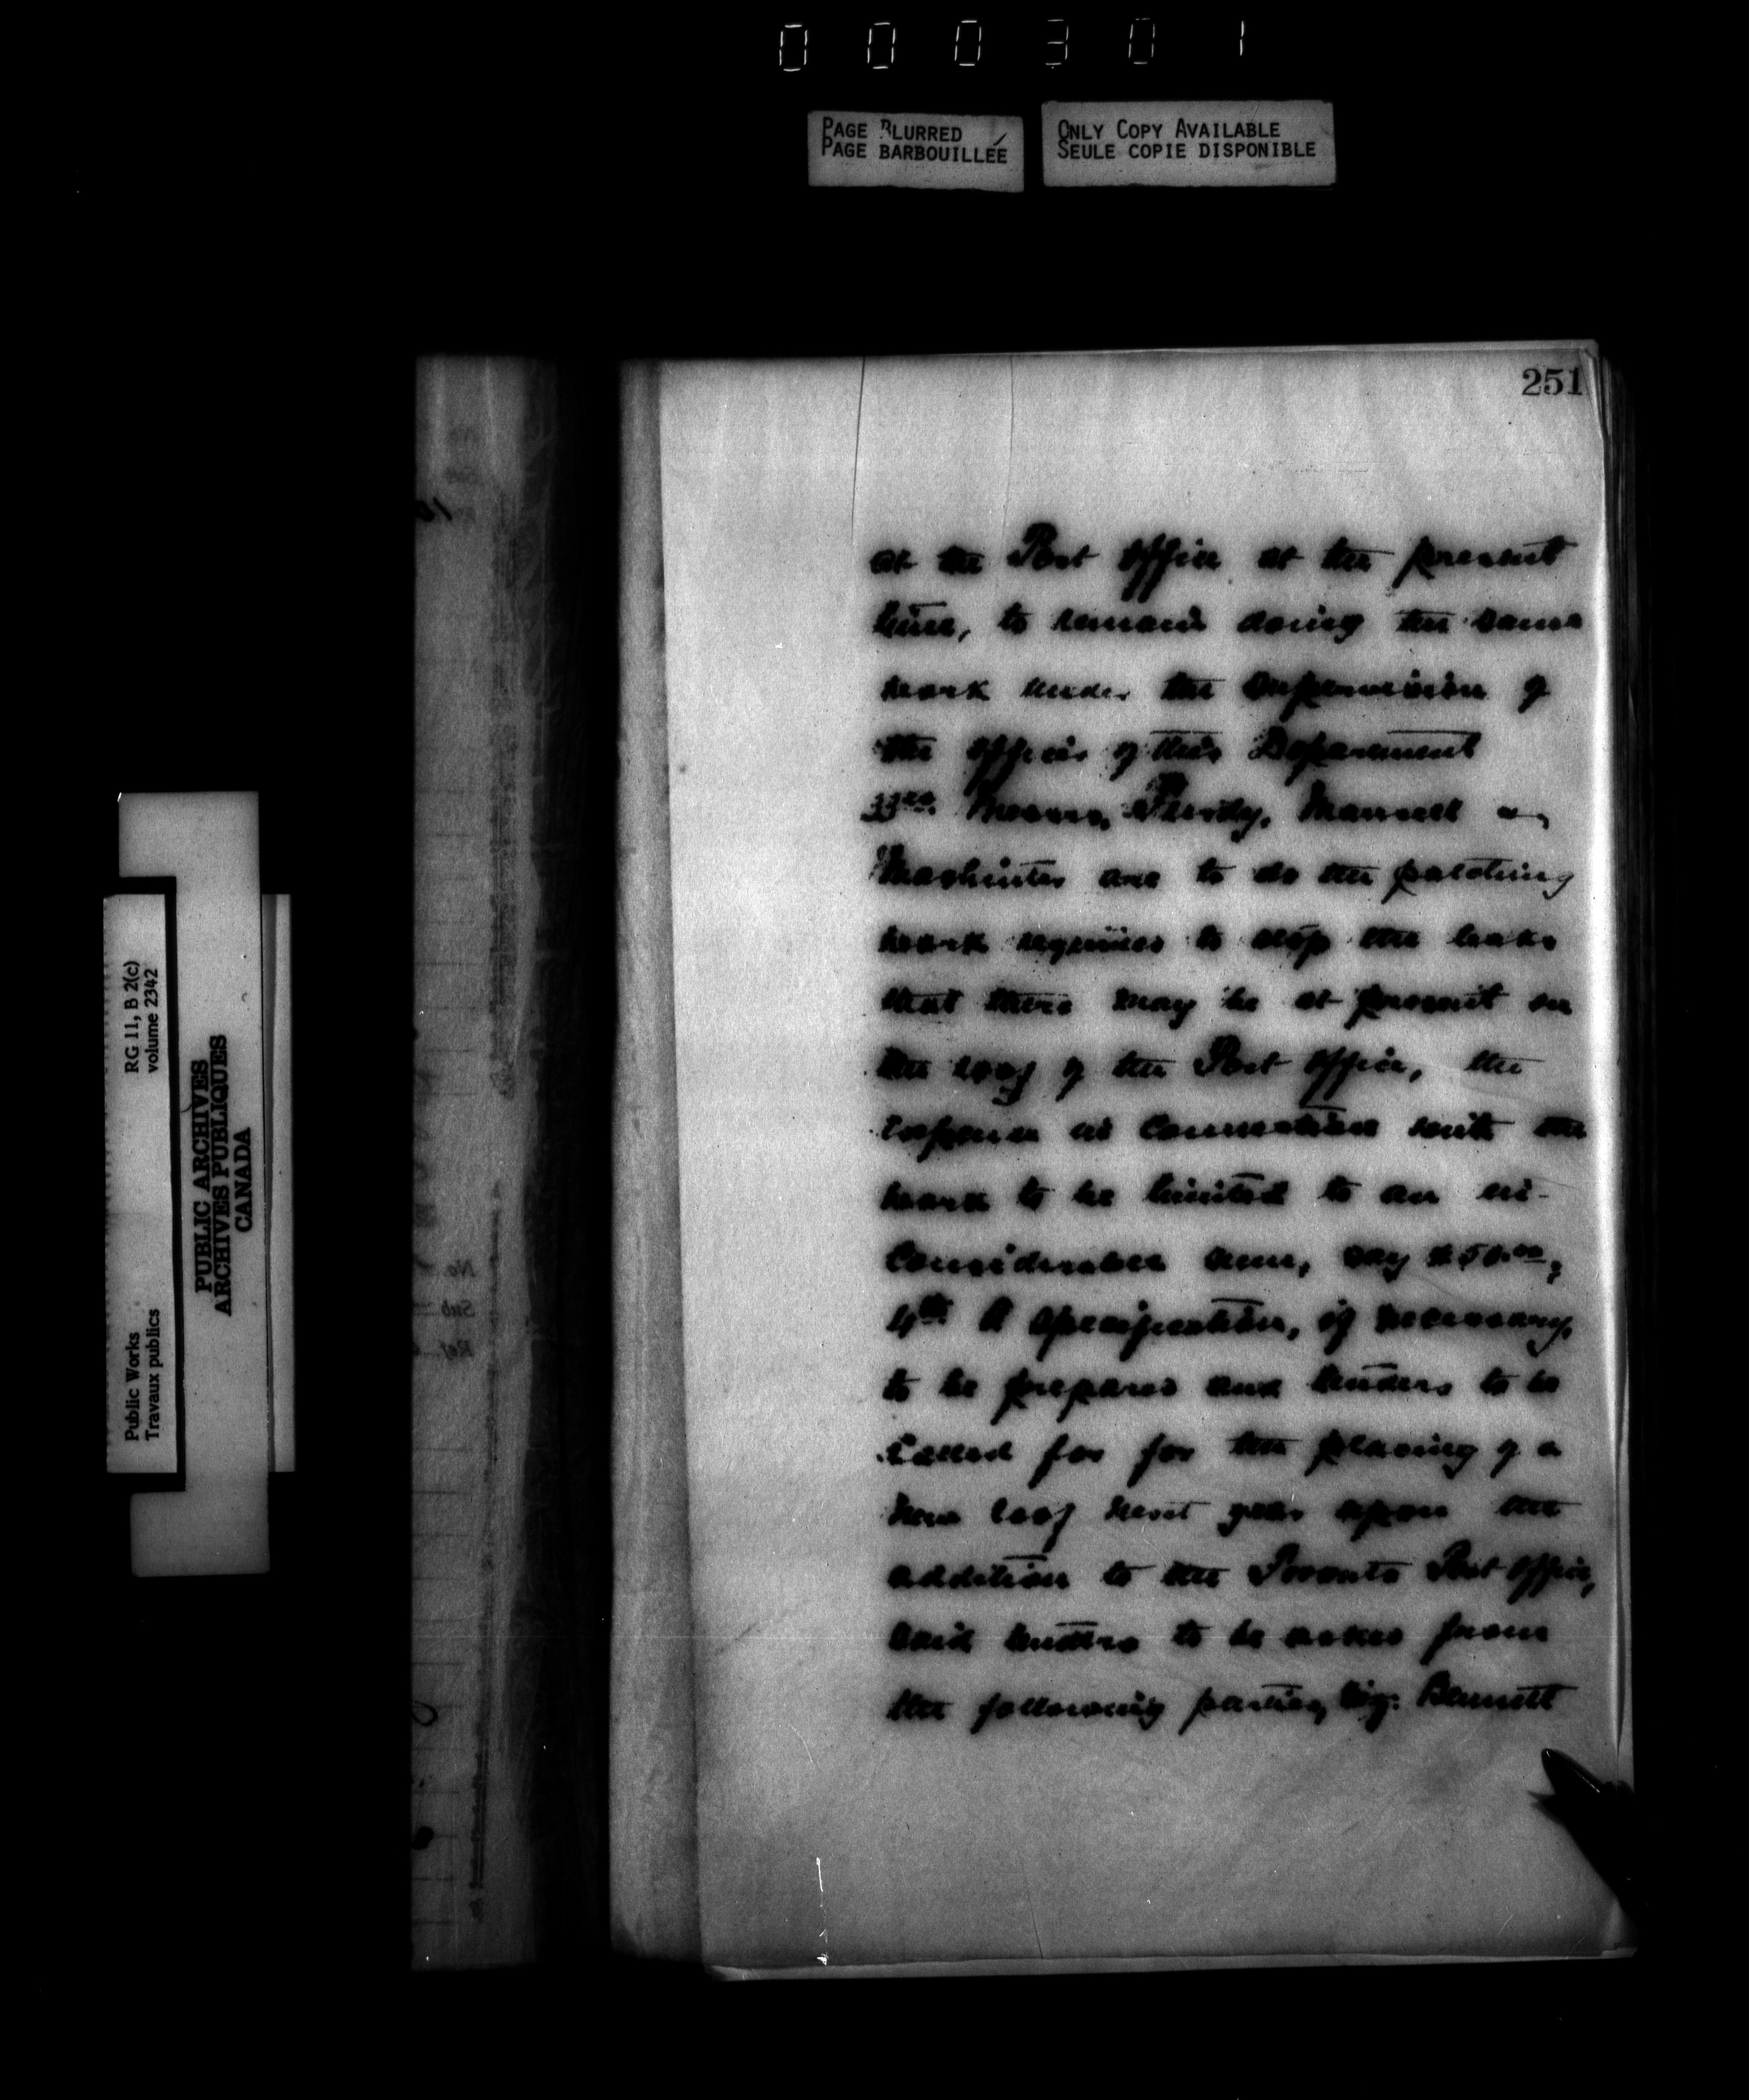 000301
PAGE BLURRED
PAGE BARBOUILLÉE
ONLY COPY AVAILABLE
SEULE COPIE DISPONIBLE
251
at the Post Office at the present
time, to remain doing the same
work under the supervision of
the officer of this Department
33rd Messrs. Purdy, Mansell &
are to do the patching
work required to stop the leaks
that there may be at present on
the roof of the Post Office, the
expense in connection with the
work to be limited to an in-
considerable sum, say $50.00;
4th A specification, if necessary,
to be prepared and tenders to be
called for for the placing of a
new roof next year upon the
addition to the Toronto Post Office,
said tenders to be asked from
the following parties, viz: Bennett
Public Works
Travaux publics
RG 11, B 2(c)
volume 2342
PUBLIC ARCHIVES
ARCHIVES PUBLIQUES
CANADA
No.
Sub
Ref.